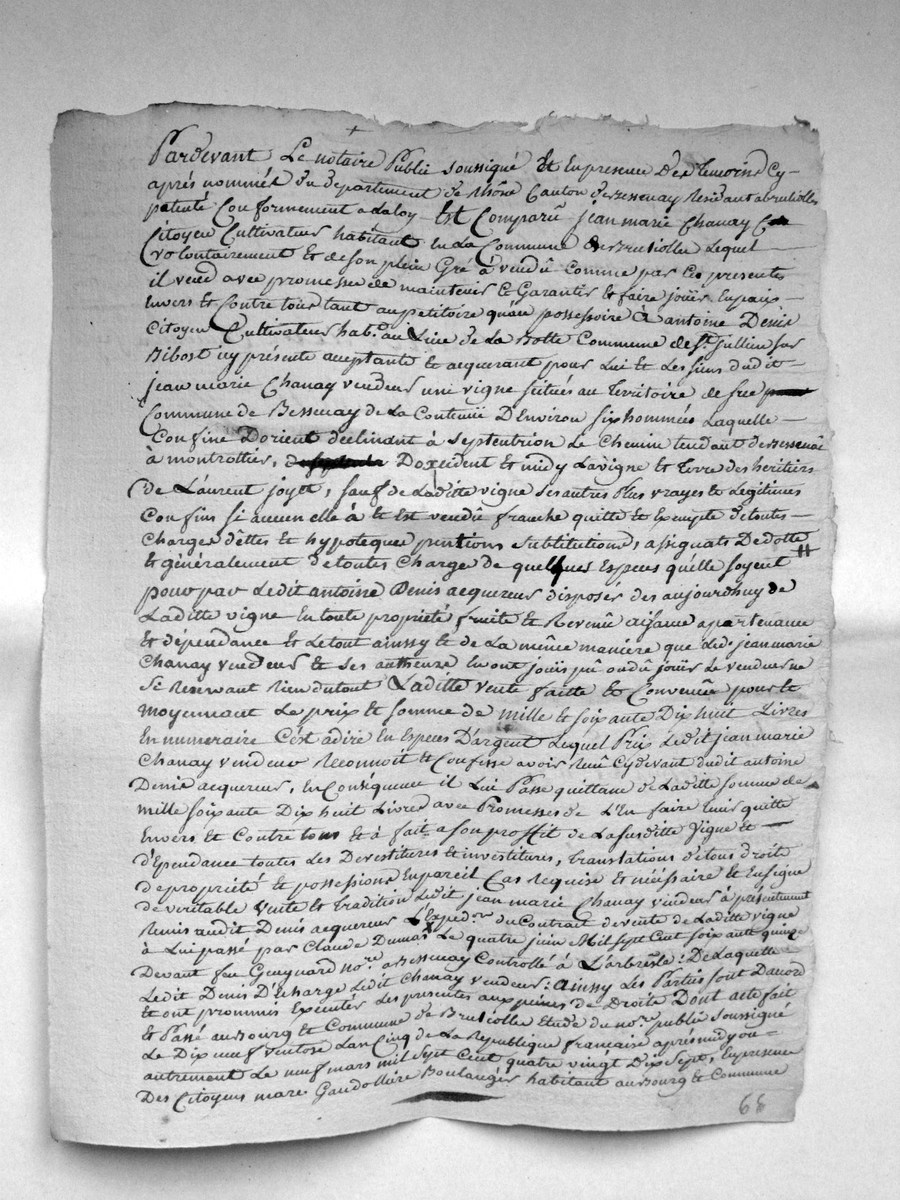 Pardevant Le notaire Public soussigné Et En presence Des Temoins Cy-
après nommés Du departement de Rhône Canton de Bessenay Residant a brulliolles
patenté Conformement a da loy - Est Comparû jean marie Chanay
Citoyen Cultivateur habitant En La Commune de Brulliolle Lequel -
volontairement Et de son plein Gré à vendû comme par Ces presentes
il vend avec promesse de maintenir & Garantir & faire joüir En paix -
Envers Et Contre tous tant au petitoire quau possessoire a antoine Denis
Citoyen Cultivateur hab.t au Lieu de La Botte Commune de St. jullien sur
Bibost icy présente acceptante & acquerant pour Lui Et Les siens dudit -
jean marie Chanay vendeur une vigne situées au Territoire de
Commune de Bessenay de La Contenüe D'Environ six hommées Laquelle -
Confine D'orient declinant à Septentrion Le Chemin tendant de Bessenay
à montrottier, D'occident Et midy La vigne Et Terre des heritiers
de Laurent joyet, sauf de Laditte vigne ses autres Plus vrayes & Legitimes
Confins si aucun elle à & Est vendû franche quitte Et Exempte de toutes -
Charges dettes Et hypoteques pentions substitutions, assignats De dotte
Et généralement de toutes Charge de quelques Especes quelle soyent
pour par Ledit antoine Denis acquereur disposer des aujourdhuy de
Laditte vigne En toute propriété fruits & Revenû apartenance
Et dépendance Et Le tout ainssy & de La même maniere que Led. jean marie
Chanay vendeur & ses autheurs En ont joüis pû ou dû joüir Le vendeur ne
se reservant Rien du tout Laditte vente faitte & Convenüe pour &
moyennant Le prix Et somme de mille Et soixante Dix huit Livres
En numeraire C'est adire En Especes D'argent Lequel Prix Ledit jean marie
Chanay vendeur Reconnoit & Confesse avoir Reçû Cy devant dudit antoine
Denis acquereur, En Conséquence il Lui Passe quittance de Laditte somme de
mille soixante Dix huit Livres avec Promesse de L'En faire tenir quitte
Envers Et Contre tous Et à fait a son proffit de La susditte Vigne Et -
d'Ependance toutes Les Devestitures & investitures, translations de tous droits
de propriété Et possessions En pareil Cas Requise Et nécéssaire & En signe
de veritable Vente Et tradition Ledit jean marie Chanay vendeur à présentement
Remis audit Denis acquereur L'Expéd.on du Contrat de vente de Laditte vigne
à Lui passé par Claude Dumas Le quatre juin Mil Sept Cent soixante quinze
Devant feu Guynard no.re a Bessenay Controllé à L'arbresle: De Laquelle
Ledit Denis D'Echarge Ledit Chanay vendeur: ainssy Les Parties sont Dacord
Et ont prommis Executer Les presentes aux peines de Droits Dont acte fait
Et Passé au Bourg Et Commune de Brulliolle Etude du no.re public soussigné
Le Dix neuf ventose Lan Cinq de La Republique française après midy ou -
autrement Le neuf mars mil Sept Cent quatre vingt Dix Sept, En presence
Des Citoyens Boulanger habitant au Bourg & Commune
68